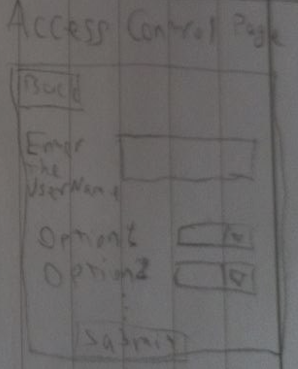 Access Control Page
Back
Enter
the
UserName
Option1
Option2
Submit